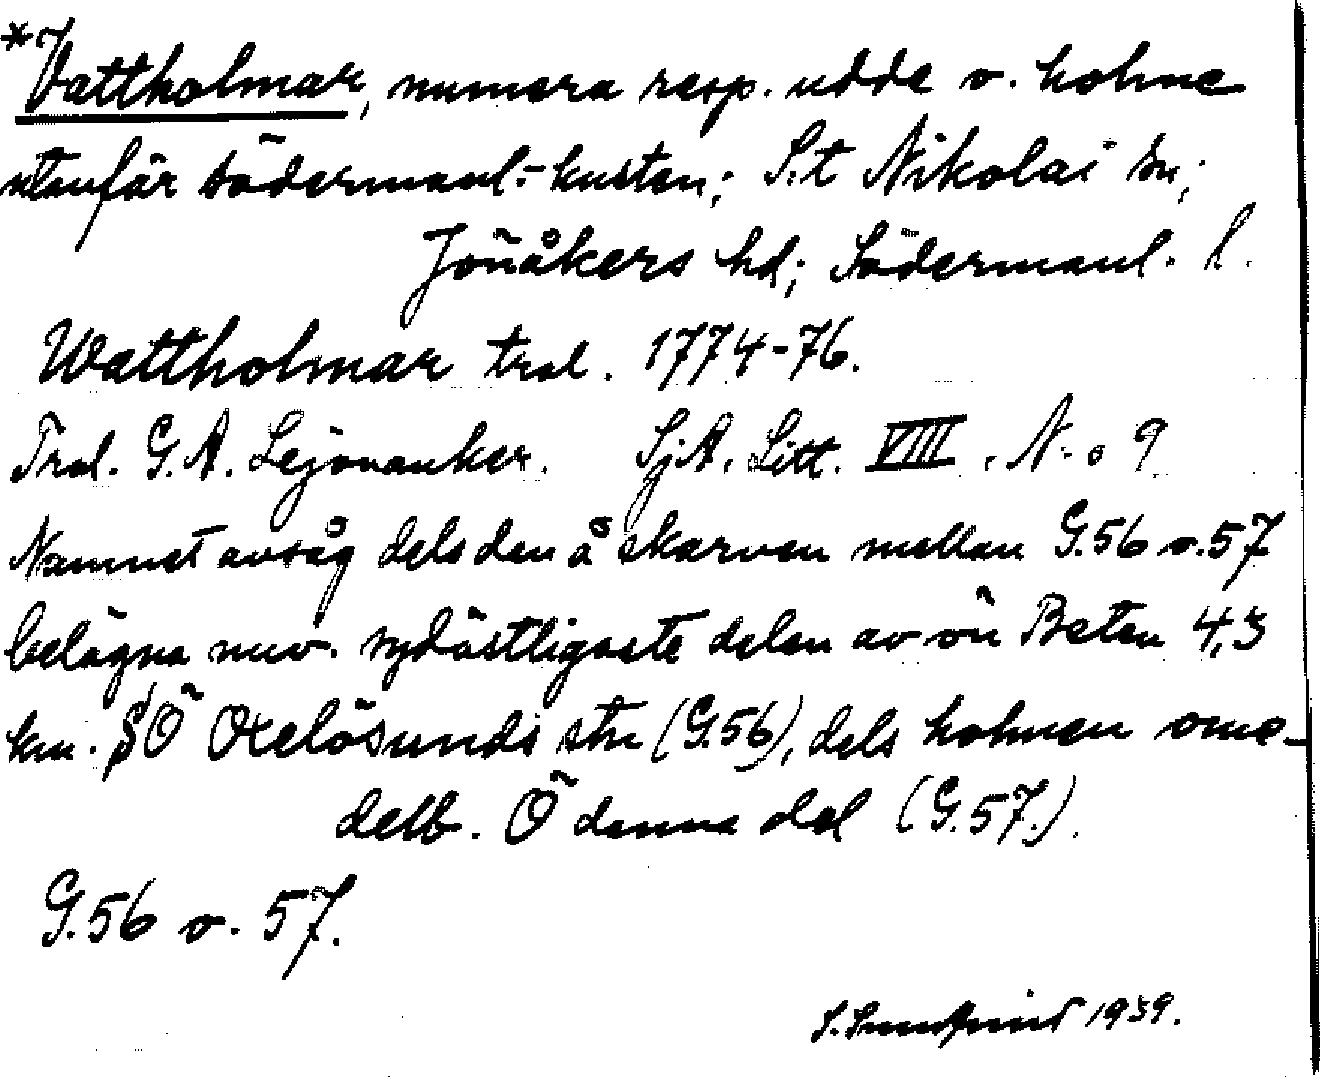 *Vattholmar, numera resp. udde o. holme
utanför södermanl.-kusten; S:t Nikolai sn;
Jönåkers hd; Södermanl. l.
Wattholmar trol. 1774-76.
Trol. G. A. Lejonanker. SjA. Litt. VIII. N.o 9
Namnet avsåg dels den å skarven mellan G.56 o. 57
belägna nuv. sydöstligaste delen av ön Beten 4,3
km. SÖ Oxelösunds stn (G.56), dels holmen ome-
delb. Ö denna del (G.57.).
G.56 o. 57.
1939.